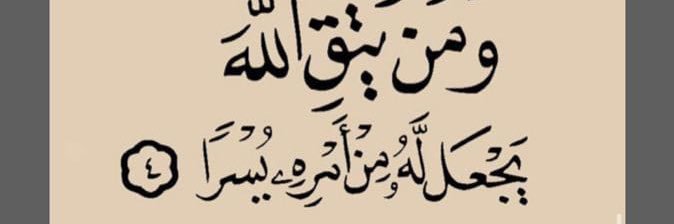 وَمَن يَتَّقِ اللَّهَ
يَجْعَل لَّهُ مِنْ أَمْرِهِ يُسْرًا ٤